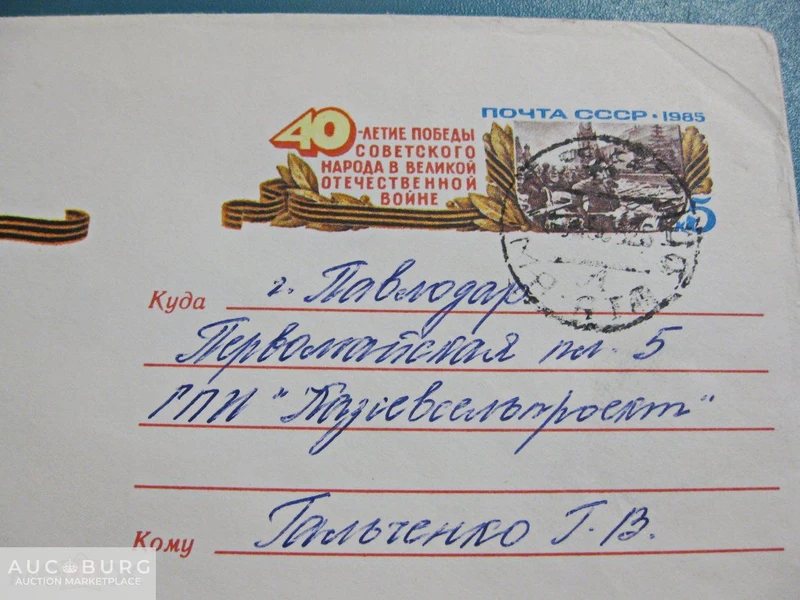 ПОЧТА СССР • 1985
40-ЛЕТИЕ ПОБЕДЫ
СОВЕТСКОГО
НАРОДА В ВЕЛИКОЙ
ОТЕЧЕСТВЕННОЙ
ВОЙНЕ
5
Куда г. Павлодар
Первомайская пл. 5
ГПИ "Казгевсельпроект"
Кому Гальченко Г. В.
AUCBURG
AUCTION MARKETPLACE